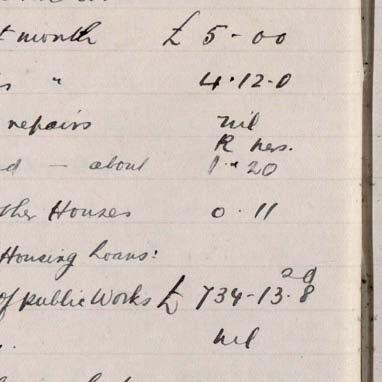 t month £ 5-00
s " 4.12.0
repairs nil
R hrs.
d — about 1 " 20
ther Houses 0.11
Housing Loans:
29
of Public Works £ 734-13.8
nil